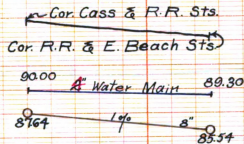 Cor. Cass & R.R. Sts.
Cor. R.R. & E. Beach Sts.
90.00 4" Water Main 89.30
8764 1% 8" 85.54